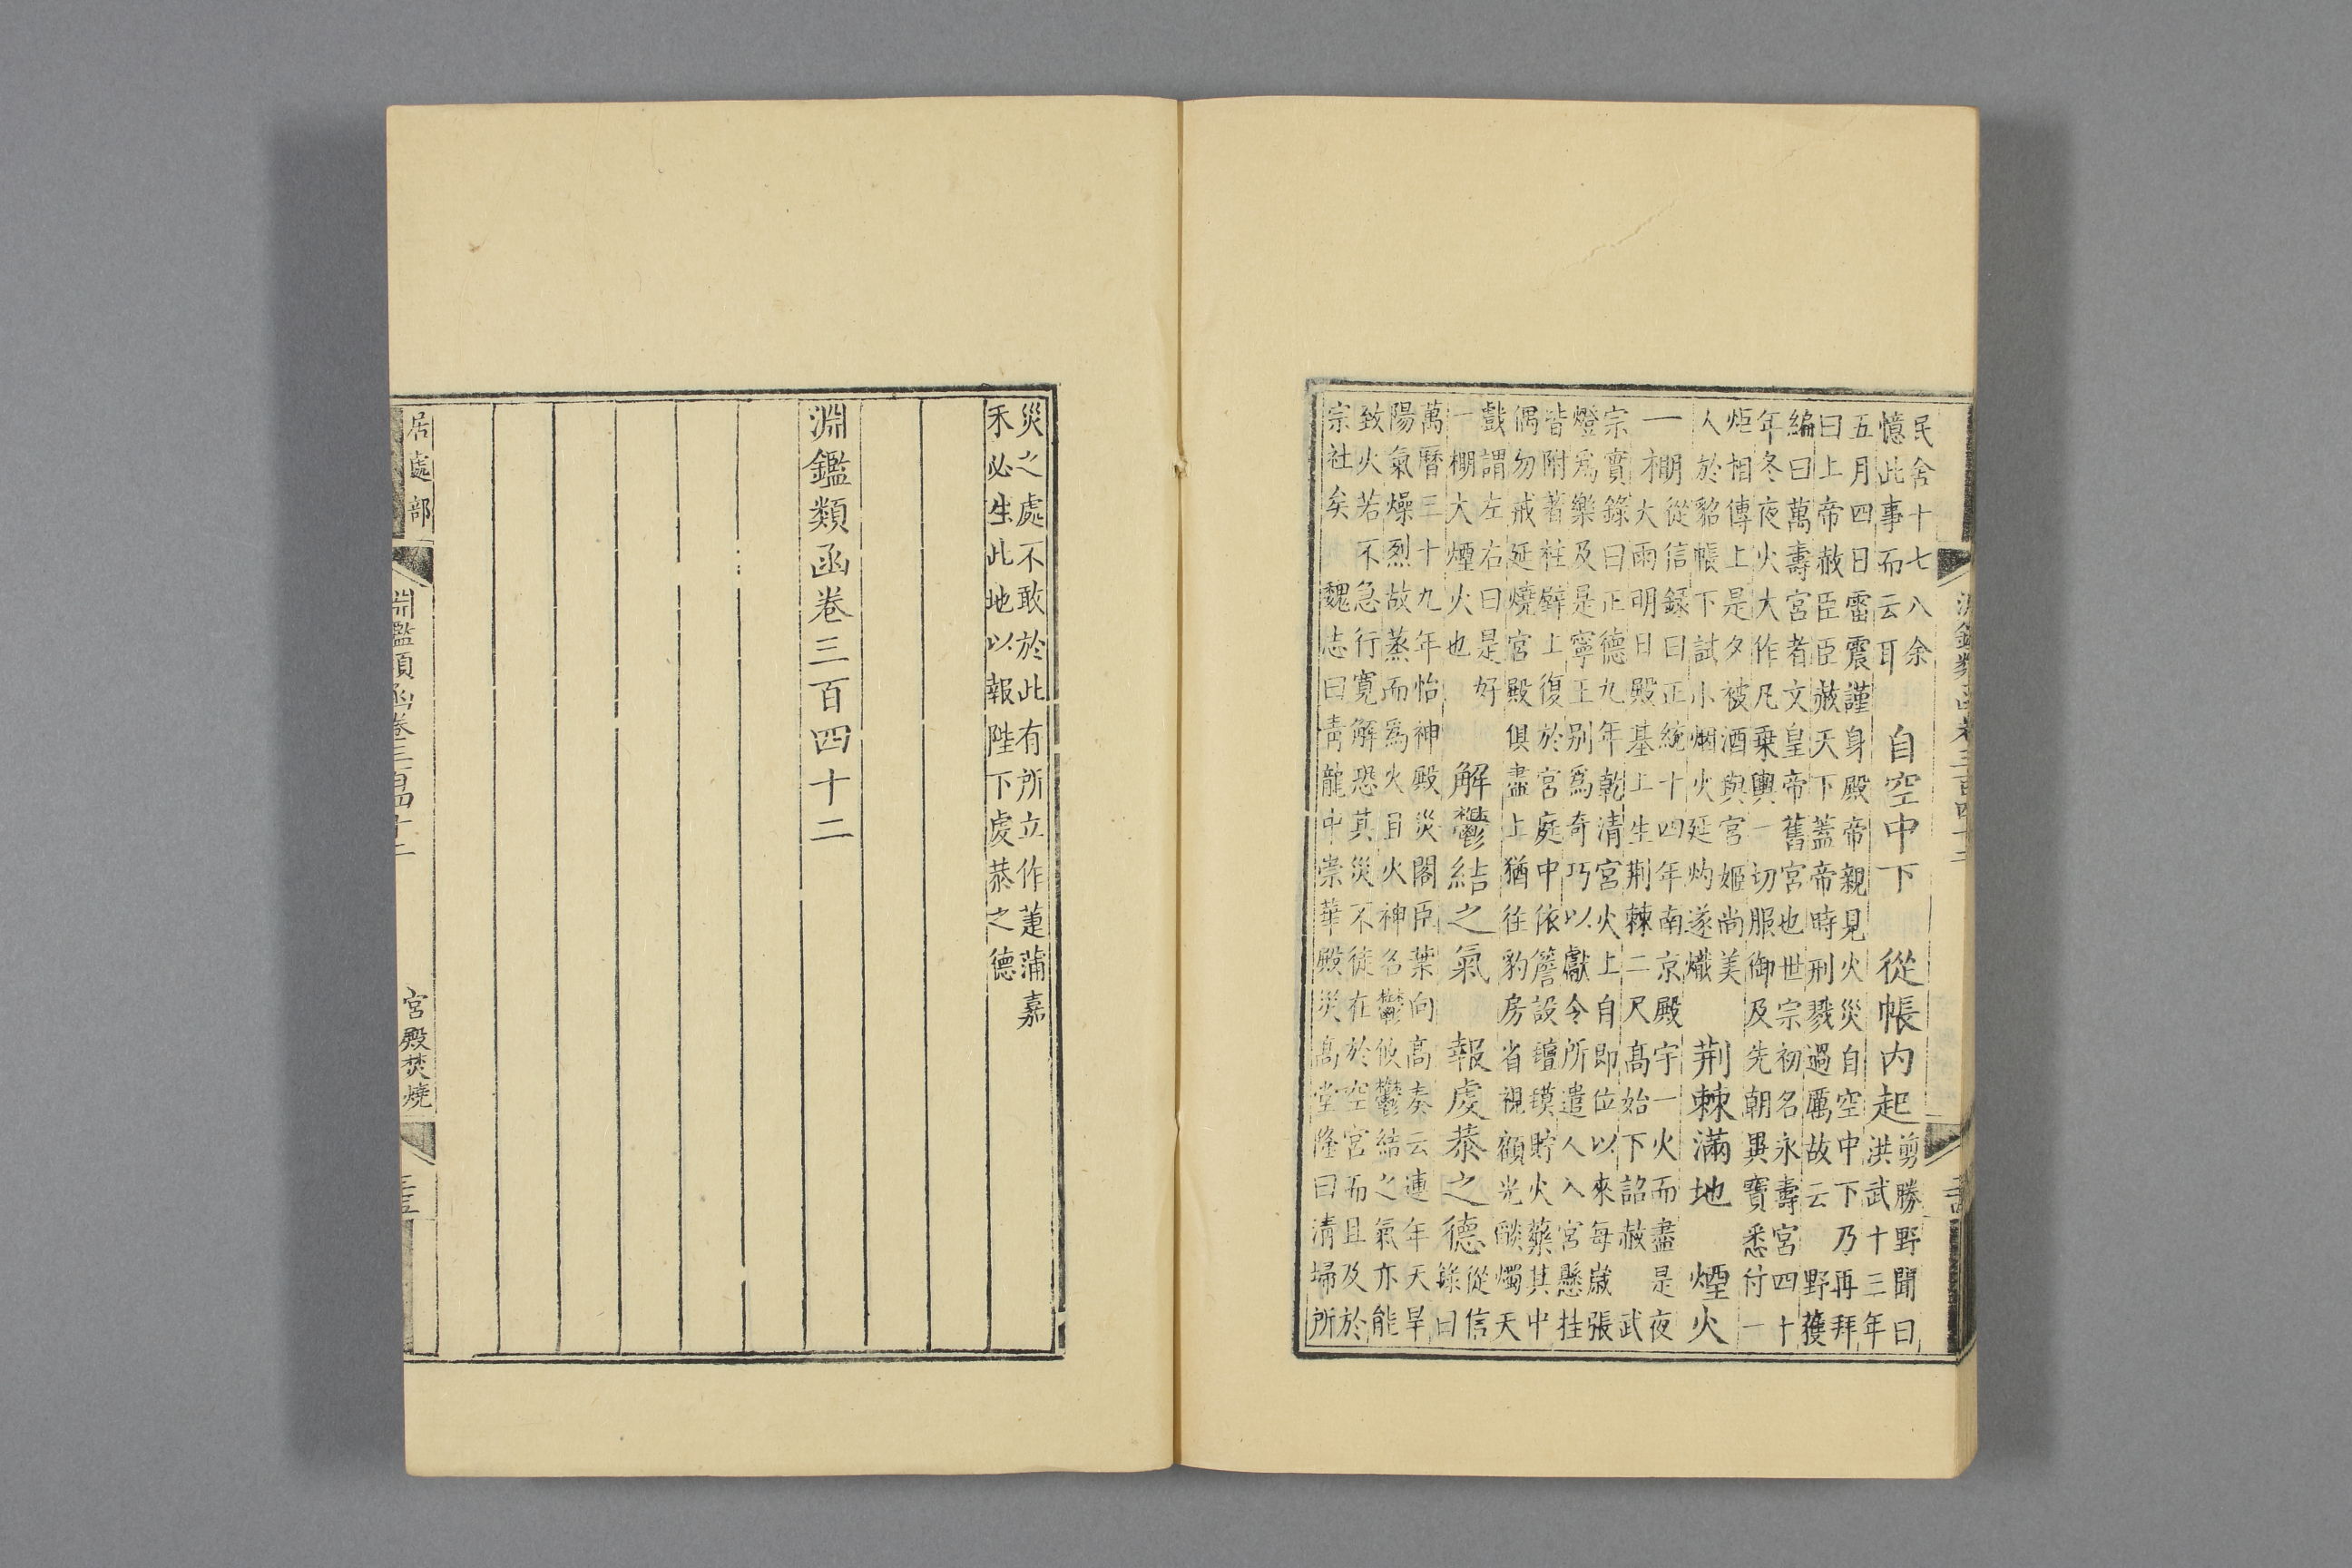 淵鑑類函卷三百四十二
民舍十七八余
憶此事而云耳
自空中下　從帳內起
剪勝野聞曰
洪武十三年
五月四日雷震謹身殿帝親見火災自空中下乃再拜
曰上帝赦臣臣赦天下蓋帝時刑戮過厲故云　野獲
編曰萬壽宮者文皇帝舊宮也世宗初名永壽宮四十
年冬夜火大作凡乗輿一切服御及先朝異寶悉付一
炬相傳上是夕被酒與宮姬尚美
人於貂帳下試小烟火延灼遂熾
荊棘滿地　煙火
一棚
從信錄曰正統十四年南京殿宇一火而盡是夜
大雨明日殿基上生荊棘二尺高始下詔赦　武
宗實錄曰正德九年乾清宮火上自即位以來每歲張
燈爲樂及是寧王別爲奇巧以獻令所遣人入宮懸挂
皆附著柱壁上復於宮庭中依簷設氊幙貯火藥其中
偶勿戒延燒宮殿俱盡上猶往豹房省視顧光燄燭天
戲謂左右曰是好
一棚大煙火也
解鬱結之氣　報虔恭之德
從信
錄曰
萬曆三十九年怡神殿災閣臣葉向高奏云連年天旱
陽氣燥烈故蒸而爲火且火神名鬱攸鬱結之氣亦能
致火若不急行寬解恐其災不徒在於空宮而且及於
宗社矣　魏志曰靑龍中崇華殿災高堂隆曰清埽所
災之處不敢於此有所立作萐蒲嘉
禾必生此地以報陛下虔恭之德
淵鑑類函卷三百四十二
居處部　淵鑑類函卷三百四十二　宮殿焚燒